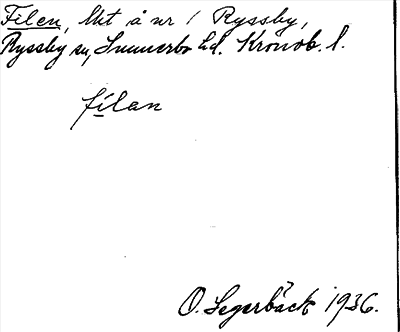 Filen, lht å nr 1 Ryssby,
Ryssby sn, Sunnerbo hd. Kronob. l.
fílan
O. Segerbäck 1936.